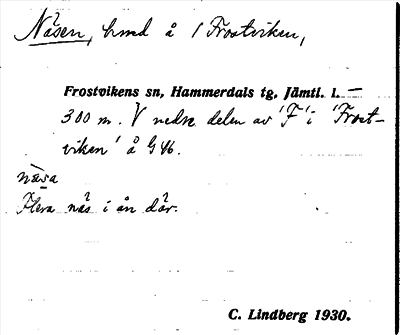 Nåsen, hmd å 1 Frostviken,
Frostvikens sn, Hammerdals tg, Jämtl. l. —
300 m. V nedre delen av 'F' i 'Frost-
viken' å G 46.
nåsa
Flera nås i ån där.
C. Lindberg 1930.